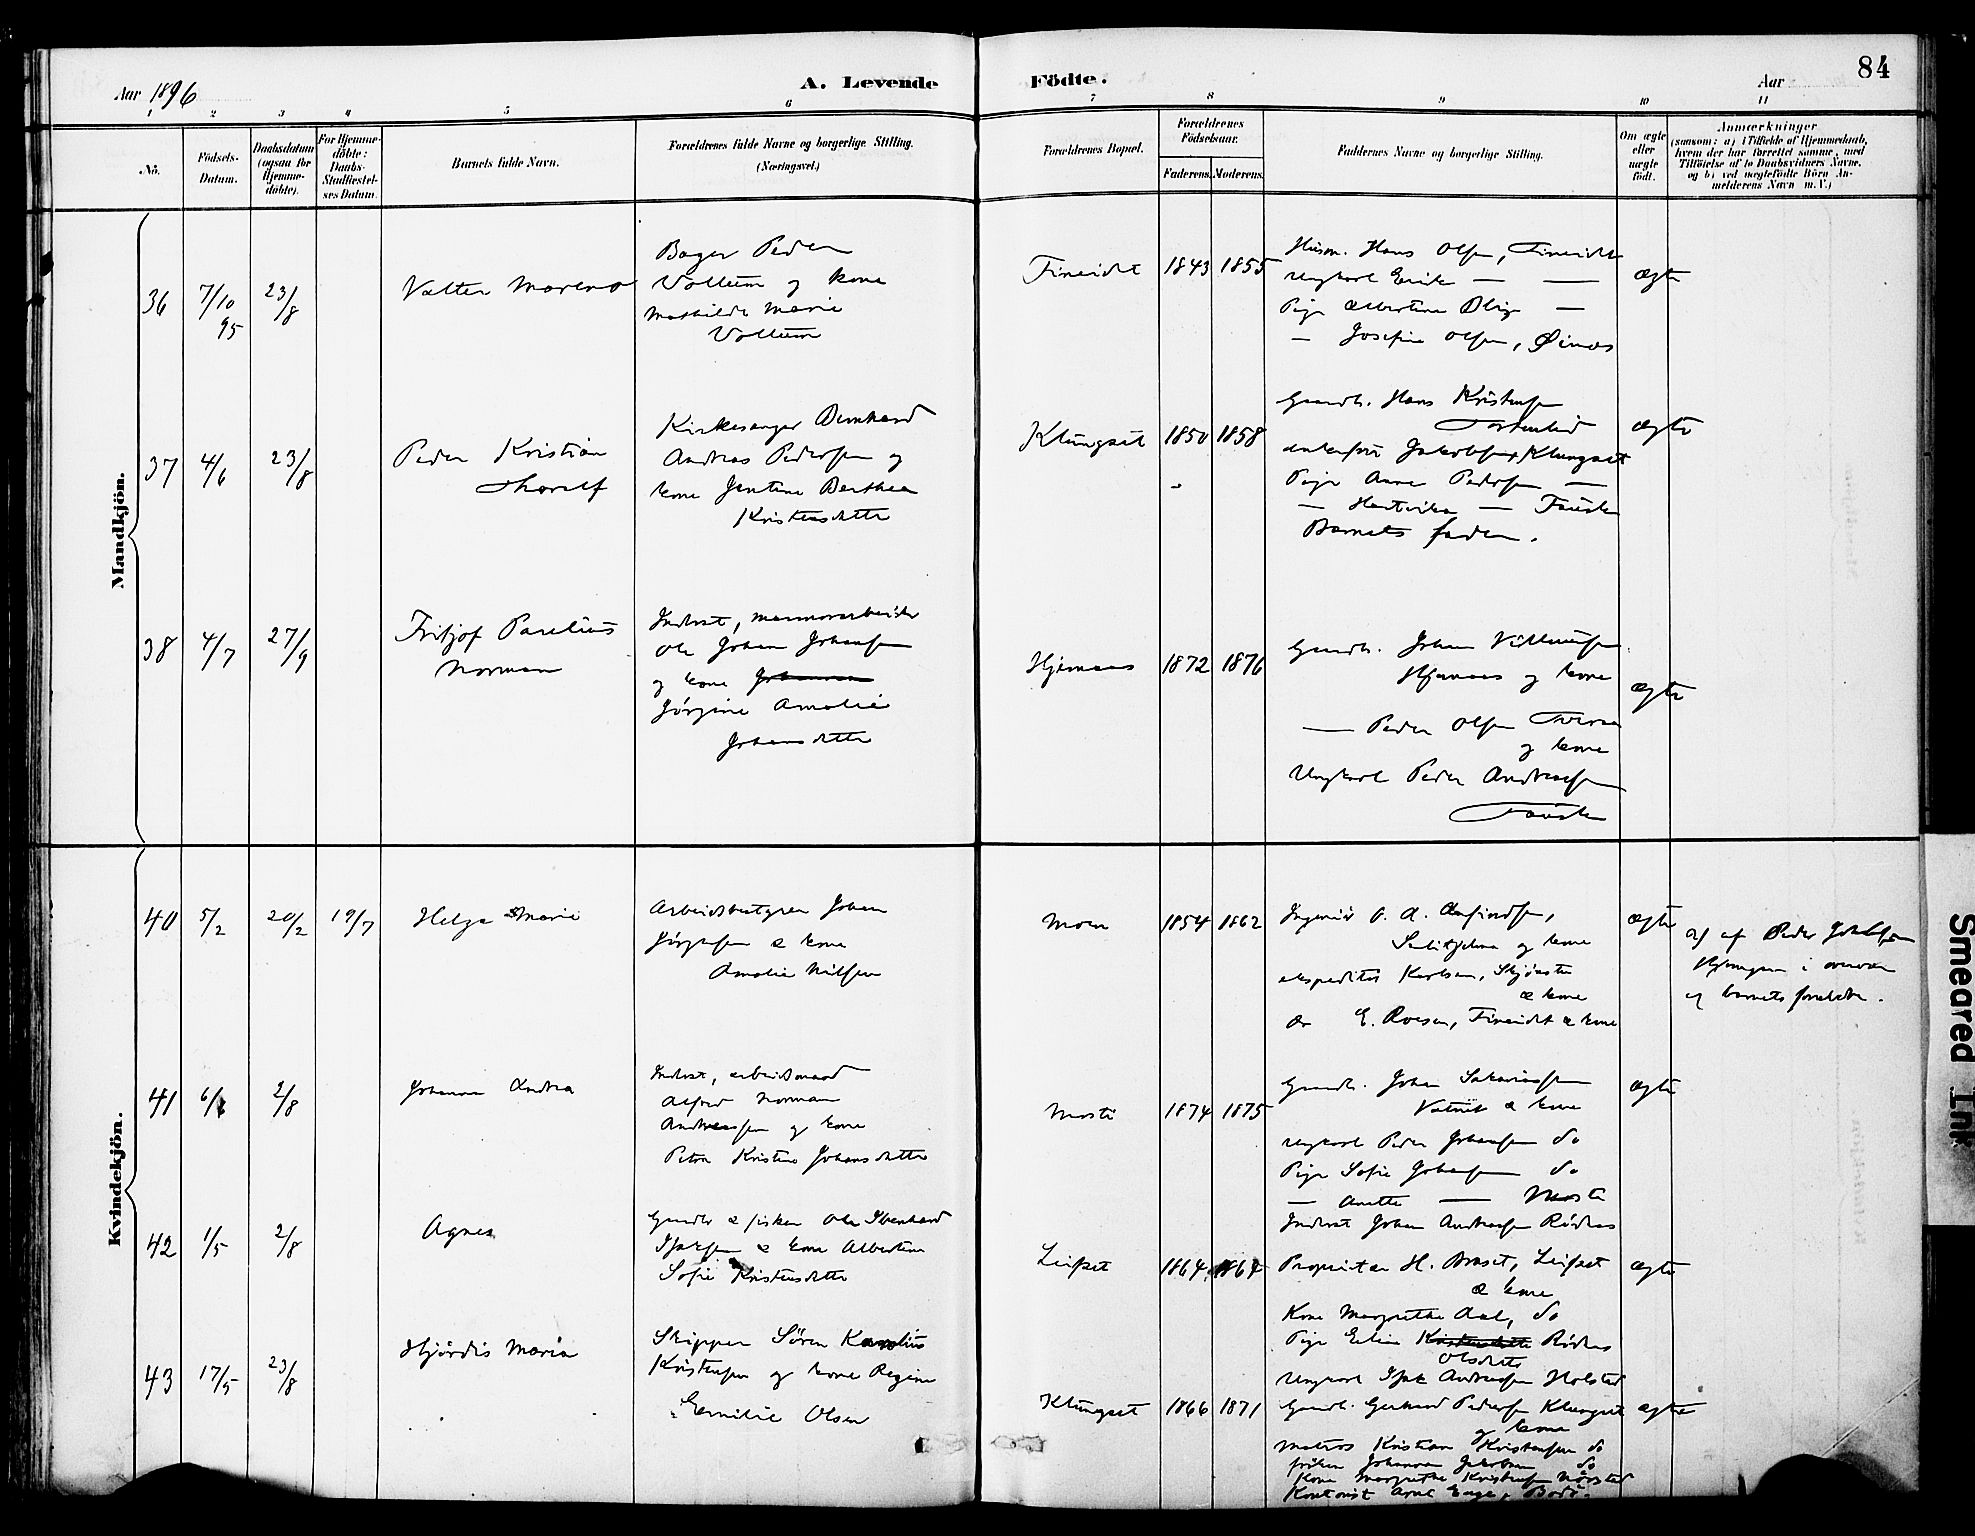 84
Aar 1896
A. Levende
Födte.
Aar
1 2 3 4 5 6 7 8 9 10 11
No.
Födsels-
Datum.
Daabsdatum
(ogsaa for
Hjemme-
döbte).
For Hjemme-
döbte:
Daabs-
Stadfæstel-
ses Datum.
Barnets fulde Navn.
Forældrenes fulde Navne og borgerlige Stilling.
(Næringsvei.)
Forældrenes Bopæl.
Forældrenes
Födselsaar.
Faderens. Moderens.
Faddernes Navne og borgerlige Stilling.
Om ægte
eller
uægte
födt.
Anmærkninger
(saasom: a) i Tilfælde af Hjemmedaab,
hvem der har forrettet samme, med
Tilföielse af to Daabsvidners Navne,
og b) ved uægtefödte Börn An-
melderens Navn m. V.)
Mandkjön.
36
7/10
95
23/8
Valter Moreno
Bager Peder
Vollum og kone
Mathilde Marie
Vollum
Fineidet
1843 1855
Husm. Hans Olsen, Fineidet
Ungkarl Erik — —
Pige Albertine Olsen —
— Josefine Olsen, Øinæs
ægte
37
4/6
23/8
Peder Kristian
Thoralf
Kirkesanger Bernhard
Andreas Pedersen og
kone Jentine Berthea
Kristensdatter
Klungset
1850 1858
Gaardb. Hans Kristensen
Jakobsen, Klungset
Pige Anna Pedersen —
— Hertvika — Fauske
Barnets fader.
ægte
38
4/7
27/9
Fritjof Parelius
Norman
Inderst, marmorarbeider
Ole Johan Johansen
og kone Johanna
Jörgine Amalie
Johansdatter
Hjemaas
1872 1876
Gaardb. Johan Villumsen
Hjemaas og kone
— Peder Olsen Tveraa
og kone
Ungkarl Peder Andreassen
Fauske
ægte
Kvindekjön.
40
5/2
20/2
19/7
Helga Marie
Arbeidsbestyrer Johan
Jörgensen & kone
Amalie Nilsen
Moen
1854 1862
Ingeniör O. A.
Sulitjelma og kone
ekspeditör Karlsen, Skjönstu
& kone
E. Roesen, Fineidet & kone
ægte
a) af Peder Jakobsen
i overvær
af barnets forældre.
41
6/6
2/8
Johanna Andrea
Inderst, arbeidsmand
Alfred Norman
Andreassen og kone
Petra Kristine Johansdatter
Moste
1874 1875
Gaardb. Johan Sakariassen
Vatnet & kone
Ungkarl Peder Johansen do
Pige Sofie Johansen do
— Anette — Moste
Inderst Johan Andreassen Rödaas
ægte
42
1/5
2/8
Agnes
Gaardb & fisker Ole Ibenhard
Isaksen & kone Albertine
Sofie Kristensdatter
Leifset
1864 1864
Proprietær H. Braset, Leifset
& kone
Kone Margrethe Aal, do
Pige Eline Kristensdatter Rödaas
Olsdatter
Ungkarl Isak Andreassen Holstad
ægte
43
17/5
23/8
Hjördis Maria
Skipper Sören Karolius
Kristensen og kone Regine
Emilie Olsen
Klungset
1866 1871
Gaardb. Gerhard Pedersen Klungset
og kone
Matros Kristian Kristensen do
fröken Johanna Jakobsen do
Kone Margrethe Kristensen Nörstad
Kontorist Arnt Enge, Bodö.
ægte
Smeared Ink